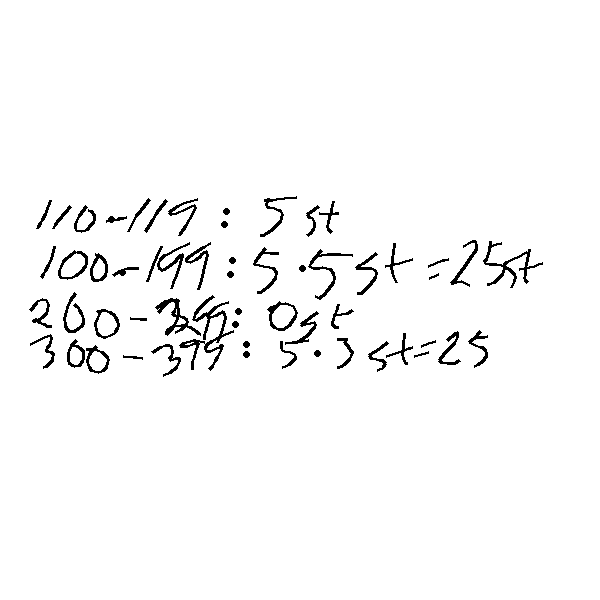 110-119: 5 st
100-199: 5·5 st = 25 st
200-299: 0 st
300-399: 5·3 st = 25